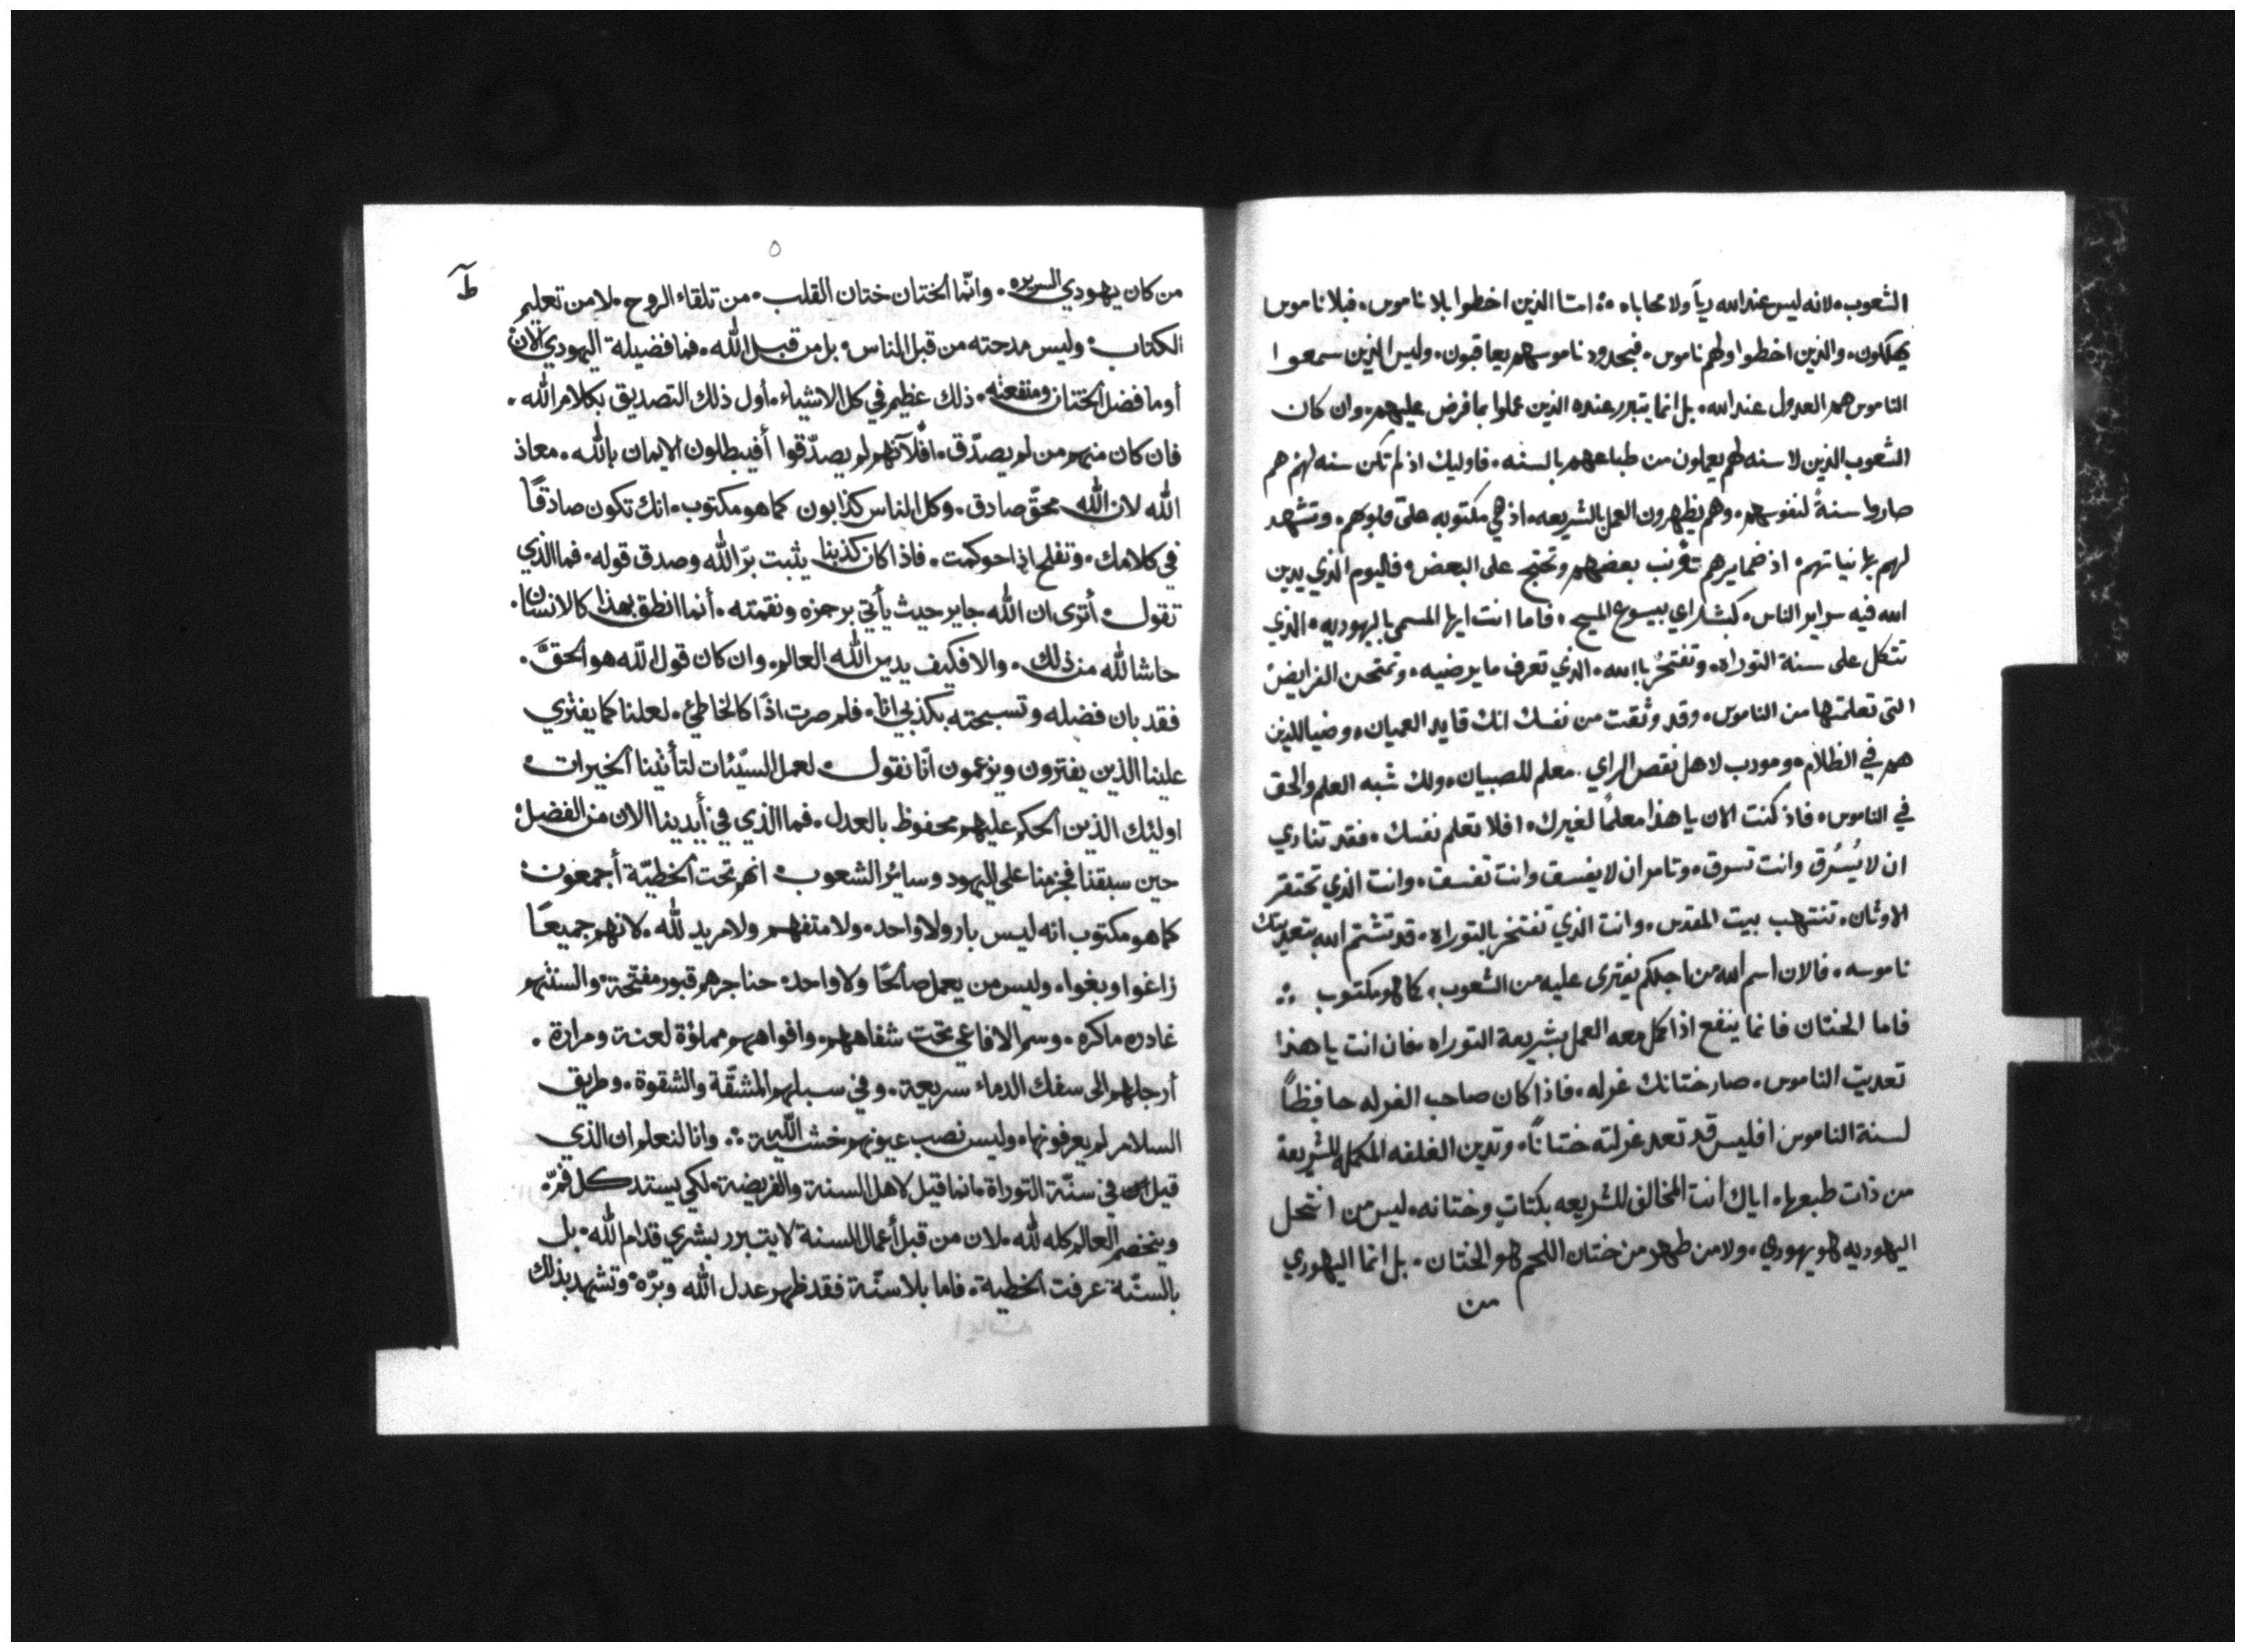 الشعوب. لانه ليس عند الله رياً ولا محاباه ؞ امّا الذين اخطوا بلا ناموس. فبلا ناموس
يهلكون. والذين اخطوا ولهم ناموس. فبحدود ناموسهم يعاقبون. وليس الذين سمعوا
الناموس هم العدول عند الله. بل انما يتبرر عنده الذين عملوا بما فرض عليهم. وان كان
الشعوب الذين لا سنه لهم يعملون من طباعهم بالسنه. فاوليك اذ لم تكن سنه لهم هم
صاروا سنةً لنفوسهم. وهم يظهرون العمل بالشريعه. اذ هي مكتوبه على قلوبهم. وتشهد
لهم نياتهم. اذ ضمايرهم تؤنب بعضهم وتحتج على البعض. في اليوم الذي يدين
الله فيه سراير الناس. كبشراي بيسوع المسيح. فاما انت ايها المسمي باليهوديه. الذي
تتكل على سنة التوراه. وتفتخر بالله. الذي تعرف ما يرضيه. وتمتحن الفرايض
التي تعلمتها من الناموس. وقد وثقت من نفسك انك قايد العميان. وضيا للذين
هم في الظلام. ومودب لاهل نقص الراي. معلم للصبيان. ولك شبه العلم والحق
في الناموس. فاذ كنت الان يا هذا معلماً لغيرك. افلا تعلم نفسك. فقد تنادي
ان لا يُسرَق وانت تسرق. وتامر ان لا يفسق وانت تفسق. وانت الذي تحتقر
الاوثان. تنتهب بيت المقدس. وانت الذي تفتخر بالتوراه. قد تشتم الله بتعديتك
ناموسه. فالان اسم الله من اجلكم يفترى عليه من الشعوب. كما هو مكتوب ؞
فاما الختان فانما ينفع اذا كمل معه العمل بشريعة التوراه. فان انت يا هذا
تعديت الناموس. صار ختانك غرله. فاذا كان صاحب الغرله حافظاً
لسنة الناموس افليس قد تعد غرلته ختاناً. وتدين الغلفه المكمله للشريعة
من ذات طبعها. اياك انت المخالف للشريعه بكتابٍ وختانه. ليس من انتحل
اليهوديه هو يهودي. ولا من طهر من ختان اللحم هو الختان. بل انما اليهودي
من
٥
من كان يهودي السريره. وانّما الختان ختان القلب. من تلقاء الروح. لا من تعليم
الكتاب. وليس مدحته من قبل الناس. بل من قبل الله. فما فضيلة اليهودي الان
أو ما فضل الختان ومنفعته. ذلك عظيم في كل الاشياء. أول ذلك التصديق بكلام الله.
فان كان منهم من لم يصدّق. افلانهم لم يصدّقوا أفيبطلون الايمان بالله. معاذ
الله لان الله محقّ صادق. وكل الناس كذابون كما هو مكتوب. انك تكون صادقاً
في كلامك. وتفلح اذا حوكمت. فاذا كان كذبنا يثبت برّ الله وصدق قوله. فما الذي
تقول. أترى ان الله جاير حيث يأتي برجزه ونقمته. أنما انطق بهذا كالانسان.
حاشا لله من ذلك. والا فكيف يدين الله العالم. وان كان قول الله هو الحقّ.
فقد بان فضيله وتسبحته بكذبي انا. فلم صرت اذاً كالخاطئ. لعلنا كما يفتري
علينا الذين يفترون ويزعمون انّا نقول. لعمل السيّئات لتأتينا الخيرات.
اولئك الذين الحكم عليهم محفوظ بالعدل. فما الذي في أيدينا الان من الفضل.
حين سبقنا فجزمنا على اليهود وسائر الشعوب. انهم تحت الخطيّة أجمعون.
كما هو مكتوب انه ليس بار ولا واحد. ولا متفهم ولا مريد لله. لانهم جميعاً
زاغوا وبغوا. وليس من يعمل صالحًا ولا واحد. حناجرهم قبور مفتّحة. والسنتهم
غادره ماكره. وسم الافاعي تحت شفاههم. وافواههم مملؤة لعنة ومرارة.
أرجلهم الى سفك الدماء سريعة. وفي سبلهم المشقّة والشقوة. وطريق
السلام لم يعرفونها. وليس نصب عيونهم خشية الله ؞ وانا لنعلم ان الذي
قيل في سنّة التوراة انما قيل لاهل السنة والفريضة. لكي يستد كل فم
ويخضع العالم كله لله. لان من قبل أعمال السنة لا يتبرر بشري قدام الله. بل
بالسنّة عرفت الخطية. فاما بلا سنّة فقد ظهر عدل الله وبرّه. وتشهد بذلك